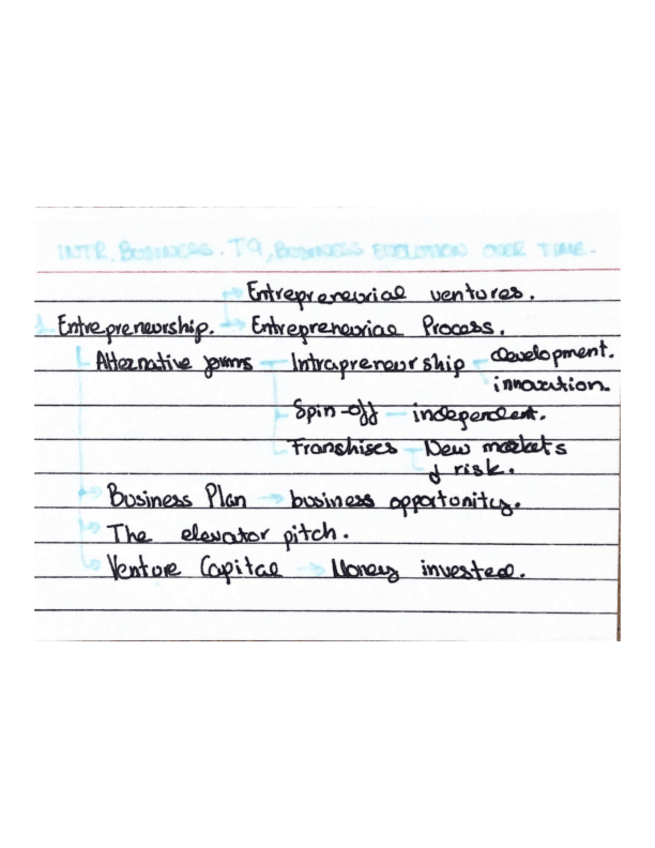 INTR. BUSINESS. T9, BUSINESS EVOLUTION OVER TIME.
Entrepreneurial ventures.
1. Entrepreneurship. Entrepreneurial Process.
Alternative forms Intrapreneurship development.
innovation.
Spin-off independent.
Franshises New markets
↓ risk.
Business Plan → business opportunity.
The elevator pitch.
Venture Capital → Money invested.